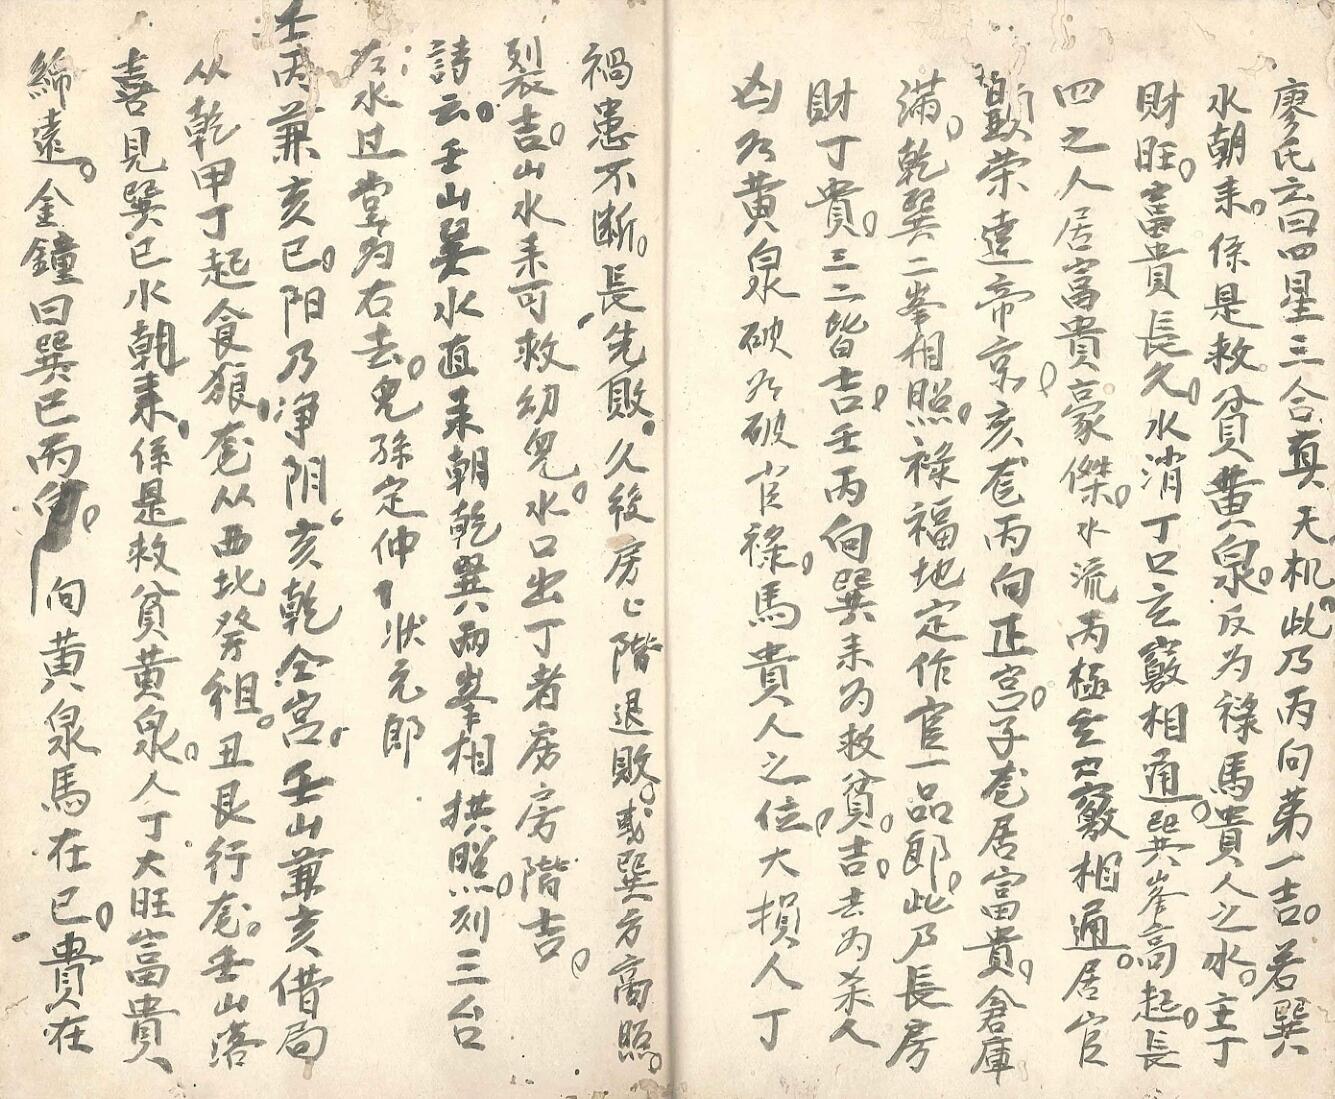 廖氏云曰四星三合真天机此乃丙向第一吉。若巽
水朝来。係是救貧黄泉。反为祿馬貴人之水。主丁
財旺。富貴長久。水消丁口立竅相通。巽峯高起。長
四之人居富貴豪傑。水流丙極去口竅相通。居官
顯荣達帝京。亥龙丙向正宫。子龙居富貴。倉庫
满。乾巽二峯相照。祿福地定作官一品郎。此乃長房
財丁貴。三二皆吉。壬丙向巽来为救貧。吉。去为杀人
凶为黄泉破为破官祿。馬貴人之位。大損人丁
禍患不断。長先敗。久後房〻階退敗。或巽方高照。
裂吉。山水来可救幼兒。水口出丁者房房階吉。
詩云。壬山巽水直来朝乾巽兩峯相拱照。列三台
左水过堂为右去。兒孫定仲状元郎
壬丙兼亥巳。阳乃净阴。亥乾仝宫。壬山兼亥借局
从乾甲丁起貪狼。龙从西北發祖。丑艮行龙。壬山落
喜見巽巳水朝来。係是救貧黄泉。人丁大旺富貴
綿遠。金鐘曰巽巳丙向。向黄泉馬在巳。貴在